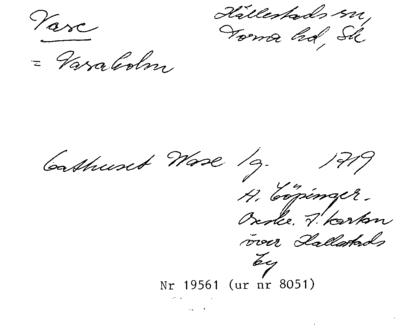 Vase
Hällestads sn,
Torna hd, Sk
= Vasaholm
Gathuset Wase lg. 1719
A. Cöpinger.
över Hallestads
by
Nr 19561 (ur nr 8051)